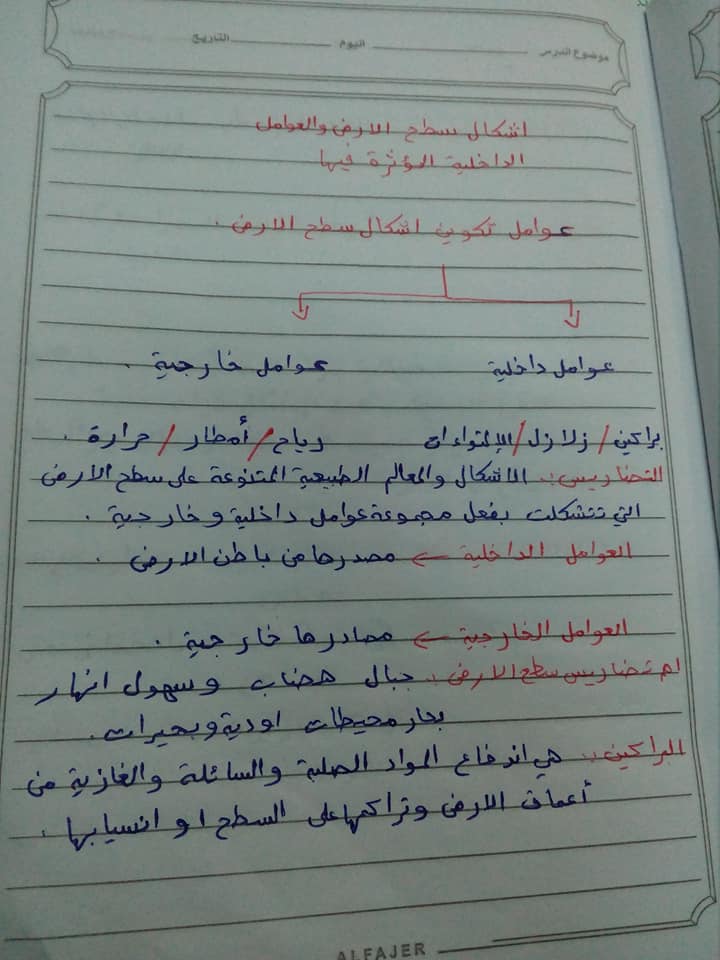 موضوع الدرس اليوم التاريخ
اشكال سطح الارض والعوامل
الداخلية المؤثرة فيها
عوامل تكوين اشكال سطح الارض .
عوامل داخلية عوامل خارجية .
براكين / زلازل / الإلتواءات رياح / أمطار / حرارة .
التضاريس :. الاشكال والمعالم الطبيعية المتنوعة على سطح الارض
التي تتشكلت بفعل مجموعة عوامل داخلية و خارجية .
العوامل الداخلية ← مصدرها من باطن الارض
العوامل الخارجية ← مصادرها خارجية .
اهم تضاريس سطح الارض :. جبال هضاب وسهول انهار
بحار محيطات اودية وبحيرات .
البراكين :. هي اندفاع المواد الصلبة والسائلة والغازية من
أعماق الارض وتراكمها على السطح او انسيابها .
ALFAJER